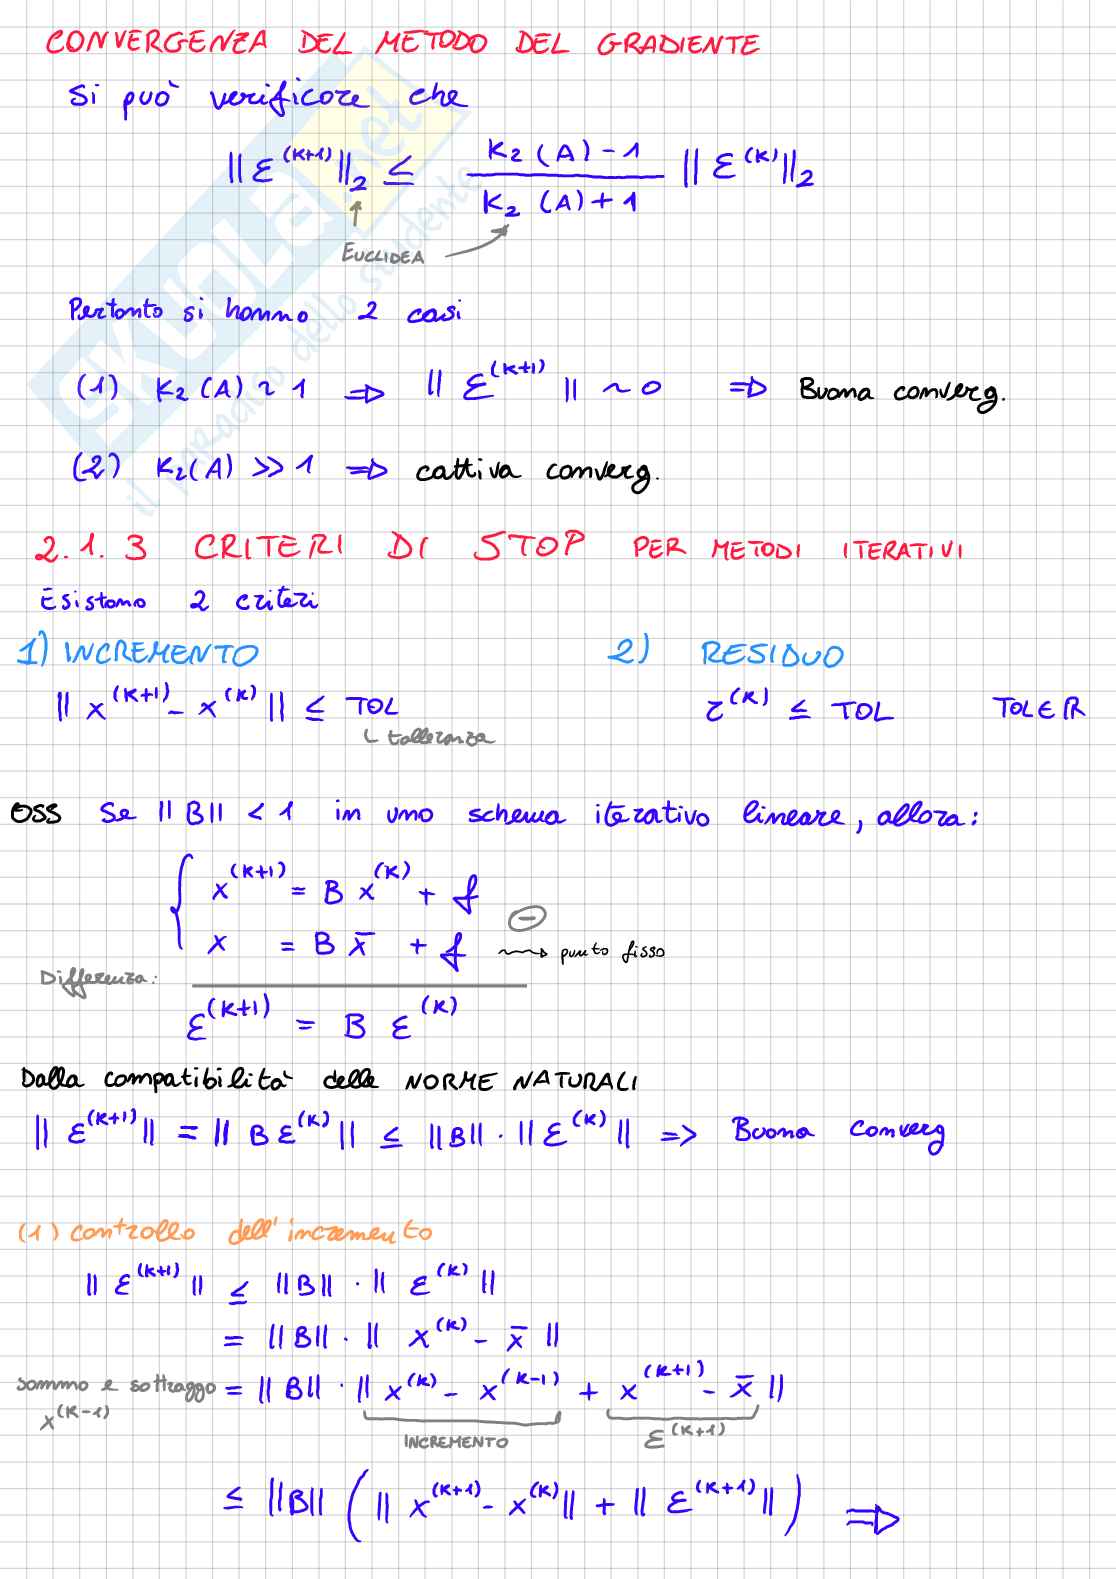 CONVERGENZA DEL METODO DEL GRADIENTE
Si può verificare che
|| ε^(k+1) ||₂ ≤ (K₂(A) - 1) / (K₂(A) + 1) || ε^(k) ||₂
EUCLIDEA
Pertanto si hanno 2 casi
(1) K₂(A) ~ 1 ⇒ || ε^(k+1) || ~ 0 ⇒ Buona converg.
(2) K₂(A) >> 1 ⇒ cattiva converg.
2.1.3 CRITERI DI STOP PER METODI ITERATIVI
Esistono 2 criteri
1) INCREMENTO 2) RESIDUO
|| x^(k+1) - x^(k) || ≤ TOL r^(k) ≤ TOL TOL ∈ ℝ
tolleranza
OSS Se || B || < 1 in uno schema iterativo lineare, allora:
x^(k+1) = B x^(k) + f
x = B x̄ + f ⊖ ⇝ punto fisso
Differenza:
ε^(k+1) = B ε^(k)
Dalla compatibilità delle NORME NATURALI
|| ε^(k+1) || = || B ε^(k) || ≤ || B || · || ε^(k) || => Buona converg
(1) controllo dell'incremento
|| ε^(k+1) || ≤ || B || · || ε^(k) ||
= || B || · || x^(k) - x̄ ||
sommo e sottraggo = || B || · || x^(k) - x^(k-1) + x^(k+1) - x̄ ||
x^(k-1)
INCREMENTO ε^(k+1)
≤ || B || ( || x^(k+1) - x^(k) || + || ε^(k+1) || ) ⇒
SKUOLA.net
il paradiso dello studente